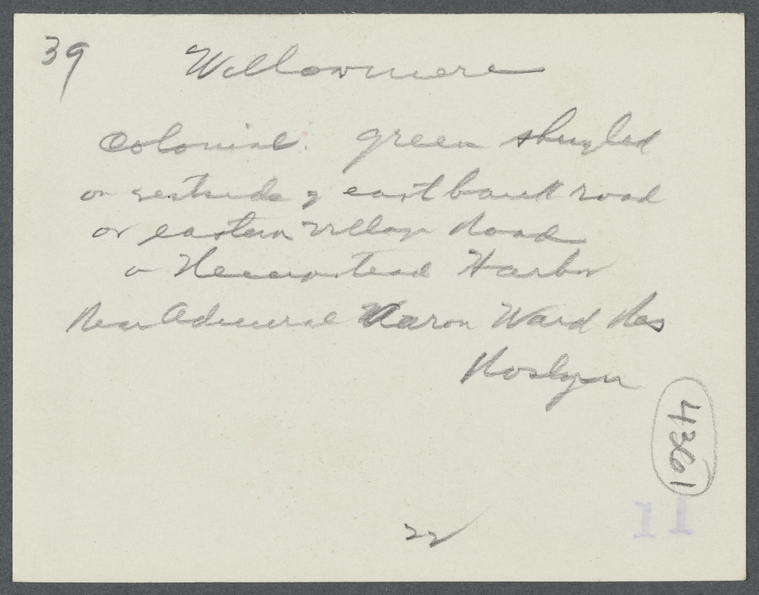 39
Willowmere
Colonial. green shingled
on westside of east bank road
or eastern village Road
on Hempstead Harbor
Rear Admiral Aaron Ward Res
Roslyn
4361
11
22